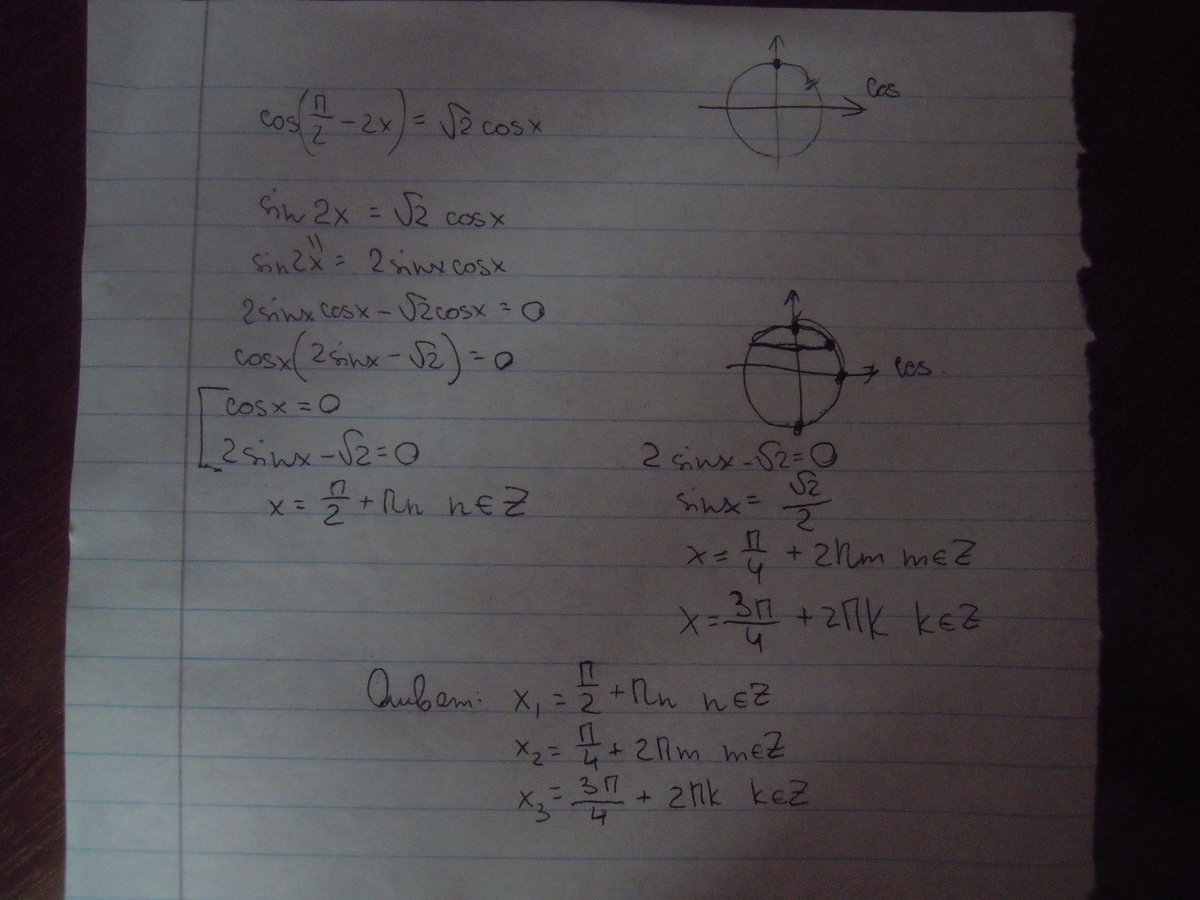 cos
cos(П/2 - 2x) = √2 cosx
sin 2x = √2 cosx
sin2x = 2sinxcosx
2sinxcosx - √2cosx = 0
cosx(2sinx - √2) = 0
cos
cosx = 0
2sinx - √2 = 0
x = П/2 + Пn n∈Z
2sinx - √2 = 0
sinx = √2/2
x = П/4 + 2Пm m∈Z
x = 3П/4 + 2Пk k∈Z
Ответ: x₁ = П/2 + Пn n∈Z
x₂ = П/4 + 2Пm m∈Z
x₃ = 3П/4 + 2Пk k∈Z